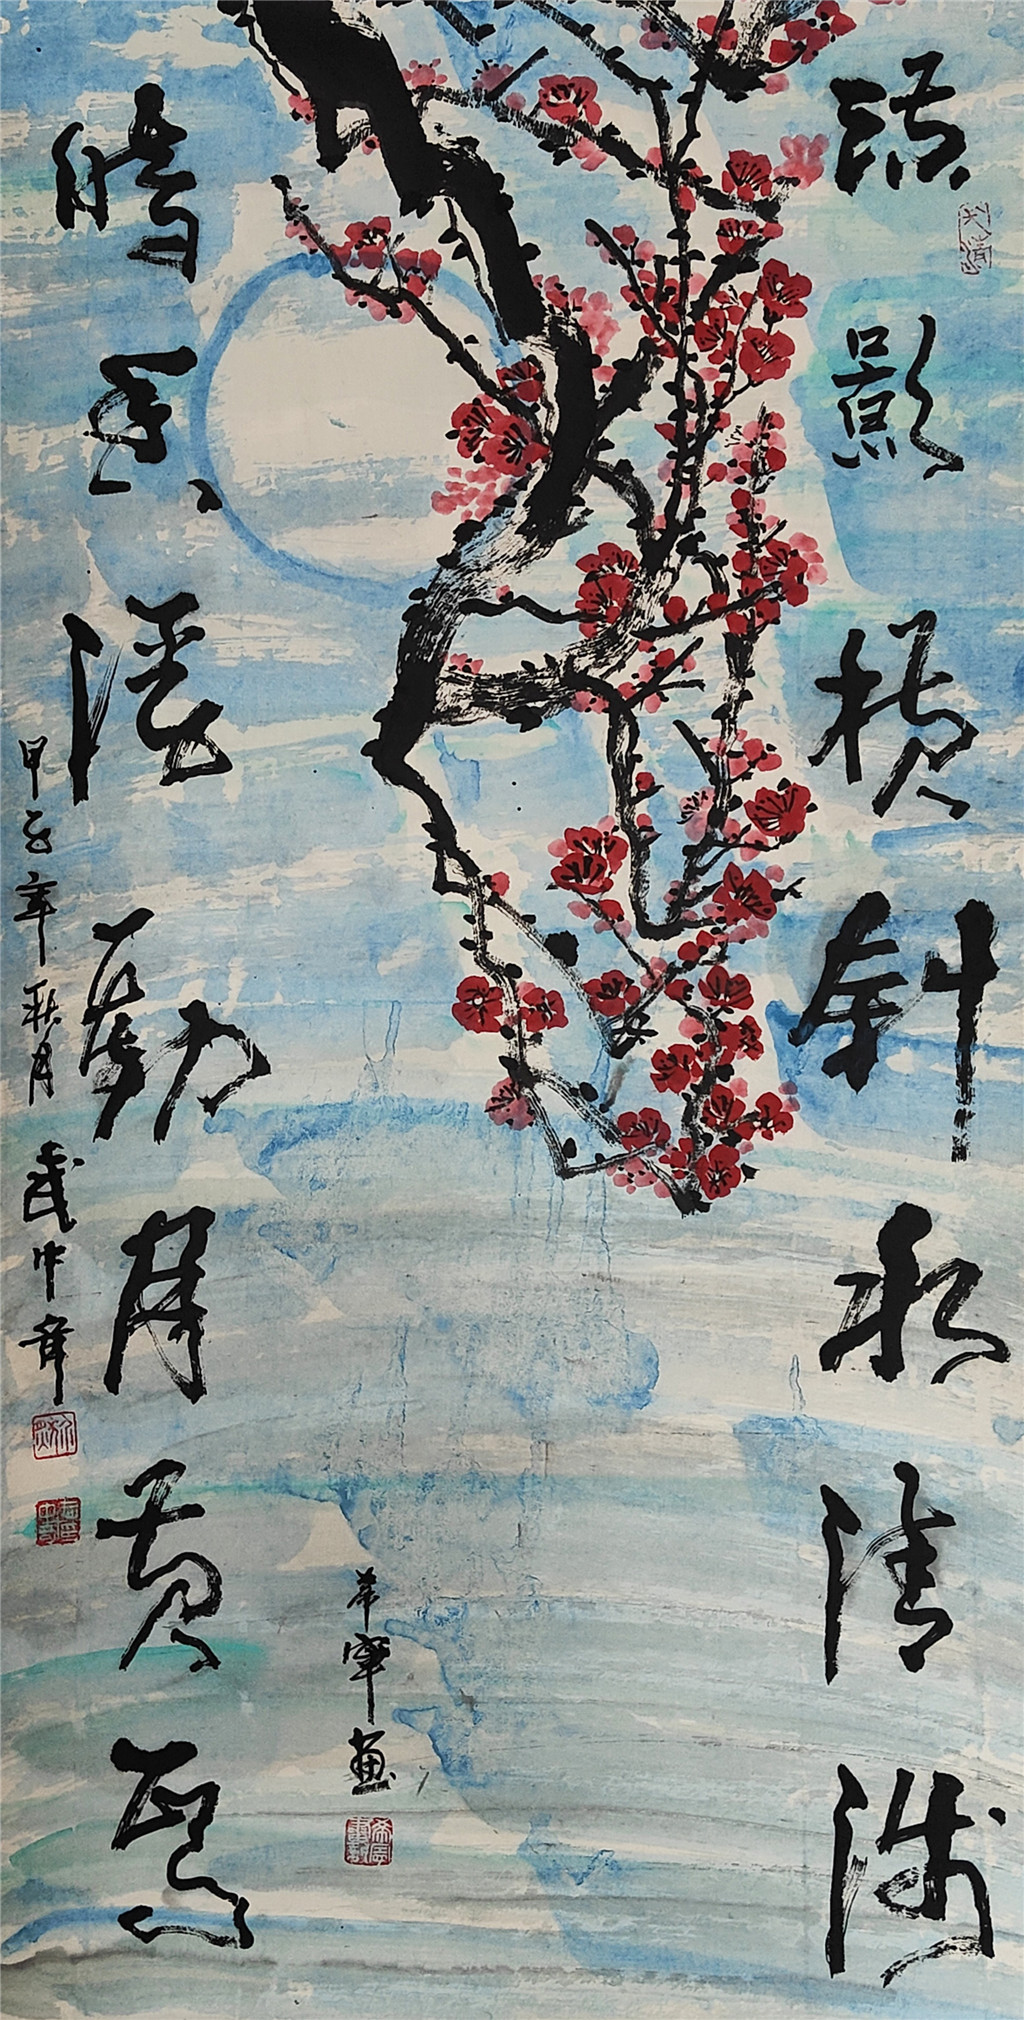 疏影横斜水清浅
暗香浮動月黄昏
甲子年秋月 武中奇
希寧畫